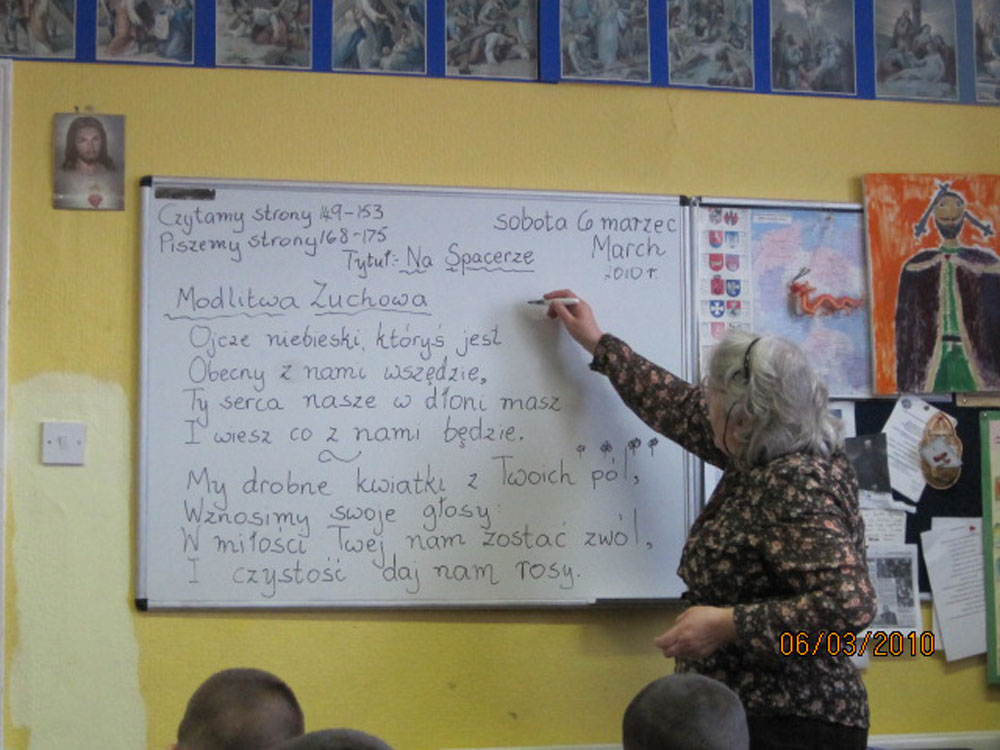 Czytamy strony 149-153
Piszemy strony 168-175
sobota 6 marzec
March
2010 r
Tytuł:- Na Spacerze
Modlitwa Zuchowa
Ojcze niebieski, któryś jest
Obecny z nami wszędzie,
Ty serca nasze w dłoni masz
I wiesz co z nami będzie.
My drobne kwiatki z Twoich pól,
Wznosimy swoje głosy:
W miłości Twej nam zostać zwól,
I czystość daj nam rosy.
06/03/2010